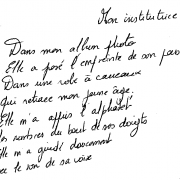 Mon institutrice
Dans mon album photo
Elle a posé l'empreinte de son pas
Dans une robe à carreaux
Qui retrace mon jeune âge.
Elle m'a appris l'alphabet
les lettres du bout de ses doigts
Elle m'a guidé doucement
le son de sa voix